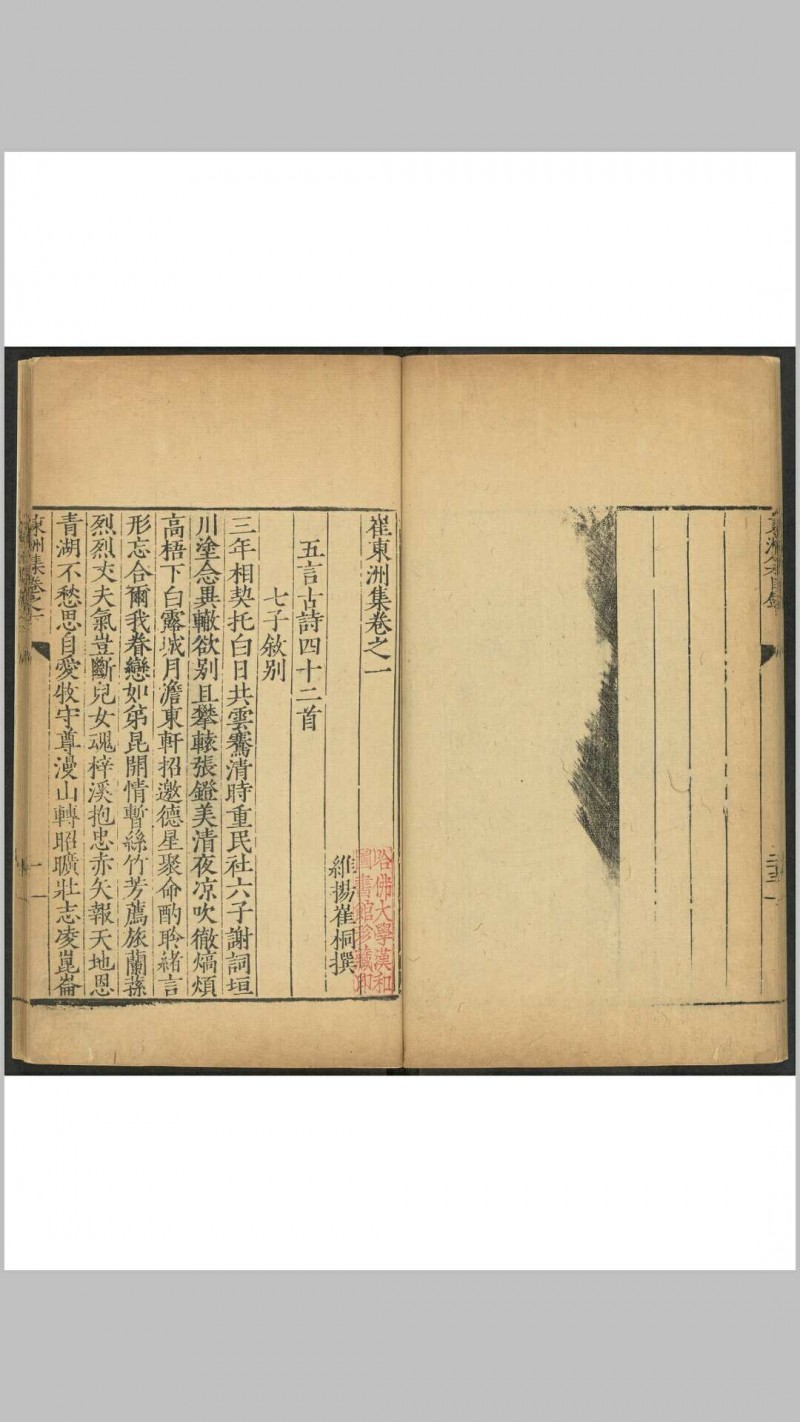 東洲集目錄
三十一
崔東洲集卷之一
哈佛大學漢和
圖書館珍藏印
維揚崔桐撰
五言古詩四十二首
七子敘别
三年相契托白日共雲騫清時重民社六子謝詞垣
川塗念異轍欲别且攀轅張鐙美清夜凉吹徹熇煩
高梧下白露城月澹東軒招邀德星聚命酌聆緒言
形忘合爾我眷戀如弟昆開情暫絲竹芳薦旅蘭蓀
烈烈丈夫氣豈斷兒女魂梓溪抱忠赤矢報天地恩
青湖不愁思自愛牧守尊漫山轉昭曠壯志凌崑崙
東洲集卷之一
一